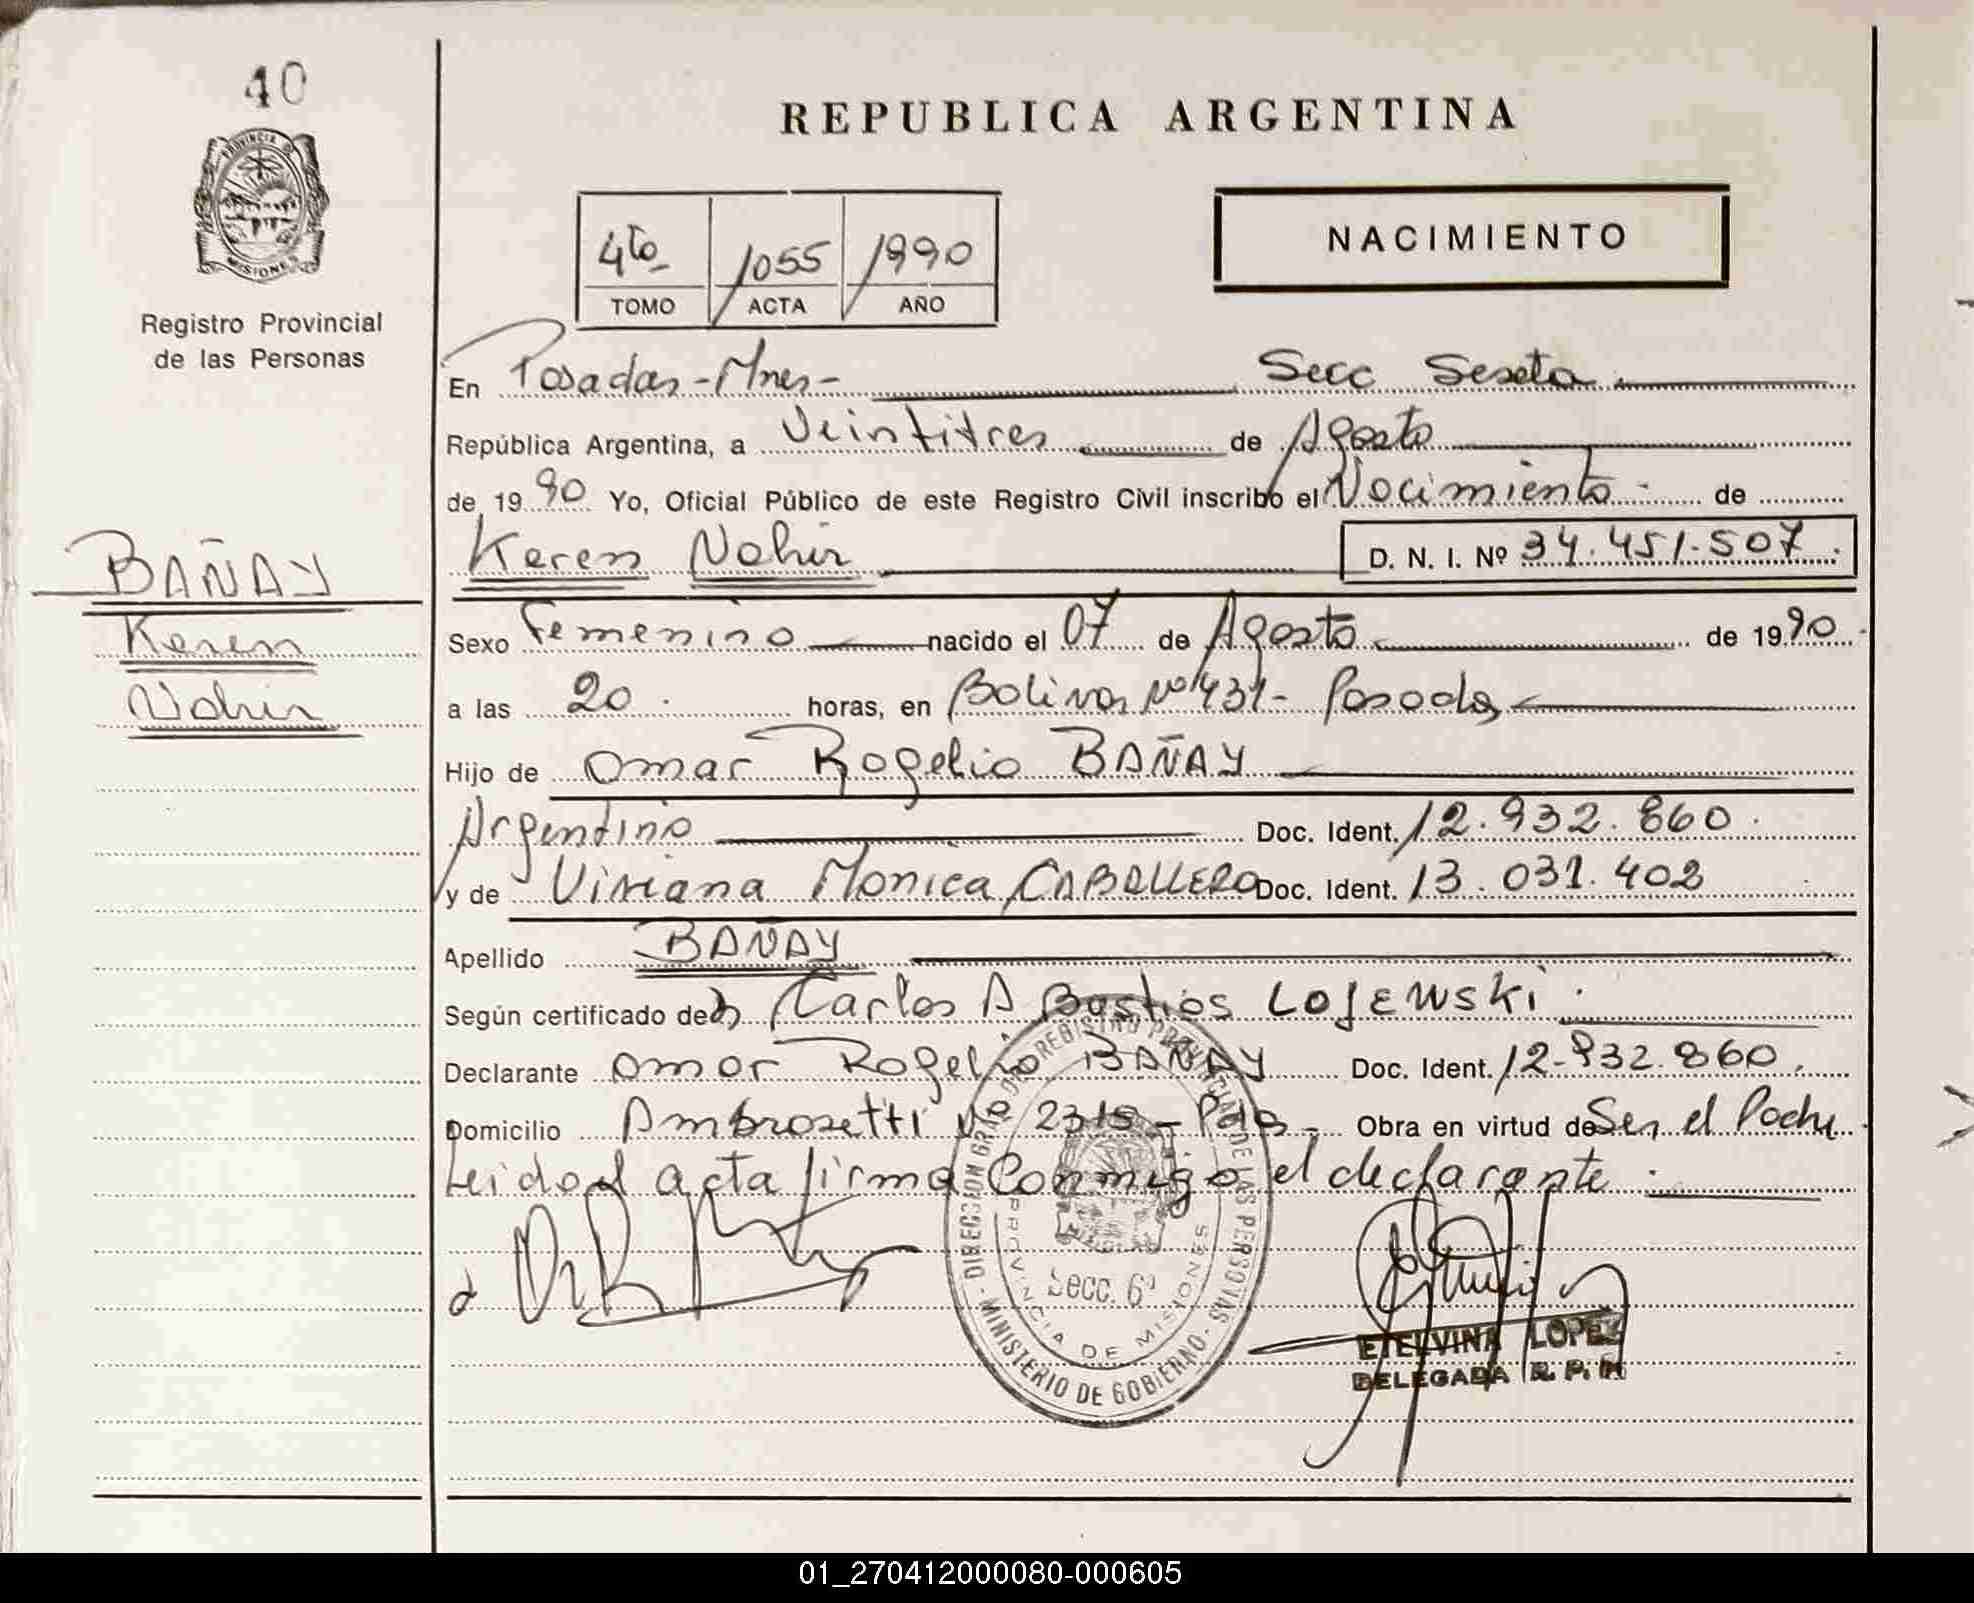 40
PROVINCIA DE
MISIONES
Registro Provincial
de las Personas
BAÑAY
Keren
Nahir
REPUBLICA ARGENTINA
4to 1055 1990
TOMO ACTA AÑO
NACIMIENTO
En Posadas-Mnes- Secc Sexta
República Argentina, a Veintitres de Agosto
de 1990 Yo, Oficial Público de este Registro Civil inscribo el Nacimiento de
Keren Nahir D. N. I. Nº 34.451.507
Sexo Femenino nacido el 07 de Agosto de 1990
a las 20 horas, en Bolivar Nº 431- Posadas
Hijo de Omar Rogelio BAÑAY
Argentino Doc. Ident. 12.932.860
y de Viviana Monica CABALLERO Doc. Ident. 13.031.402
Apellido BAÑAY
Según certificado de Carlos A Bastios LOJEWSKI
Declarante Omar Rogelio BAÑAY Doc. Ident. 12.932.860
Domicilio Ambrosetti Nº 2315 - Pdas - Obra en virtud de Ser el Padre
Leido el acta firma Conmigo el declarante
DIRECCION GRAL. DE REGISTRO PROVINCIAL DE LAS PERSONAS - MINISTERIO DE GOBIERNO -
Secc. 6ª
PROVINCIA DE MISIONES
ETELVINA LOPEZ
DELEGADA R. P. P.
01_270412000080-000605